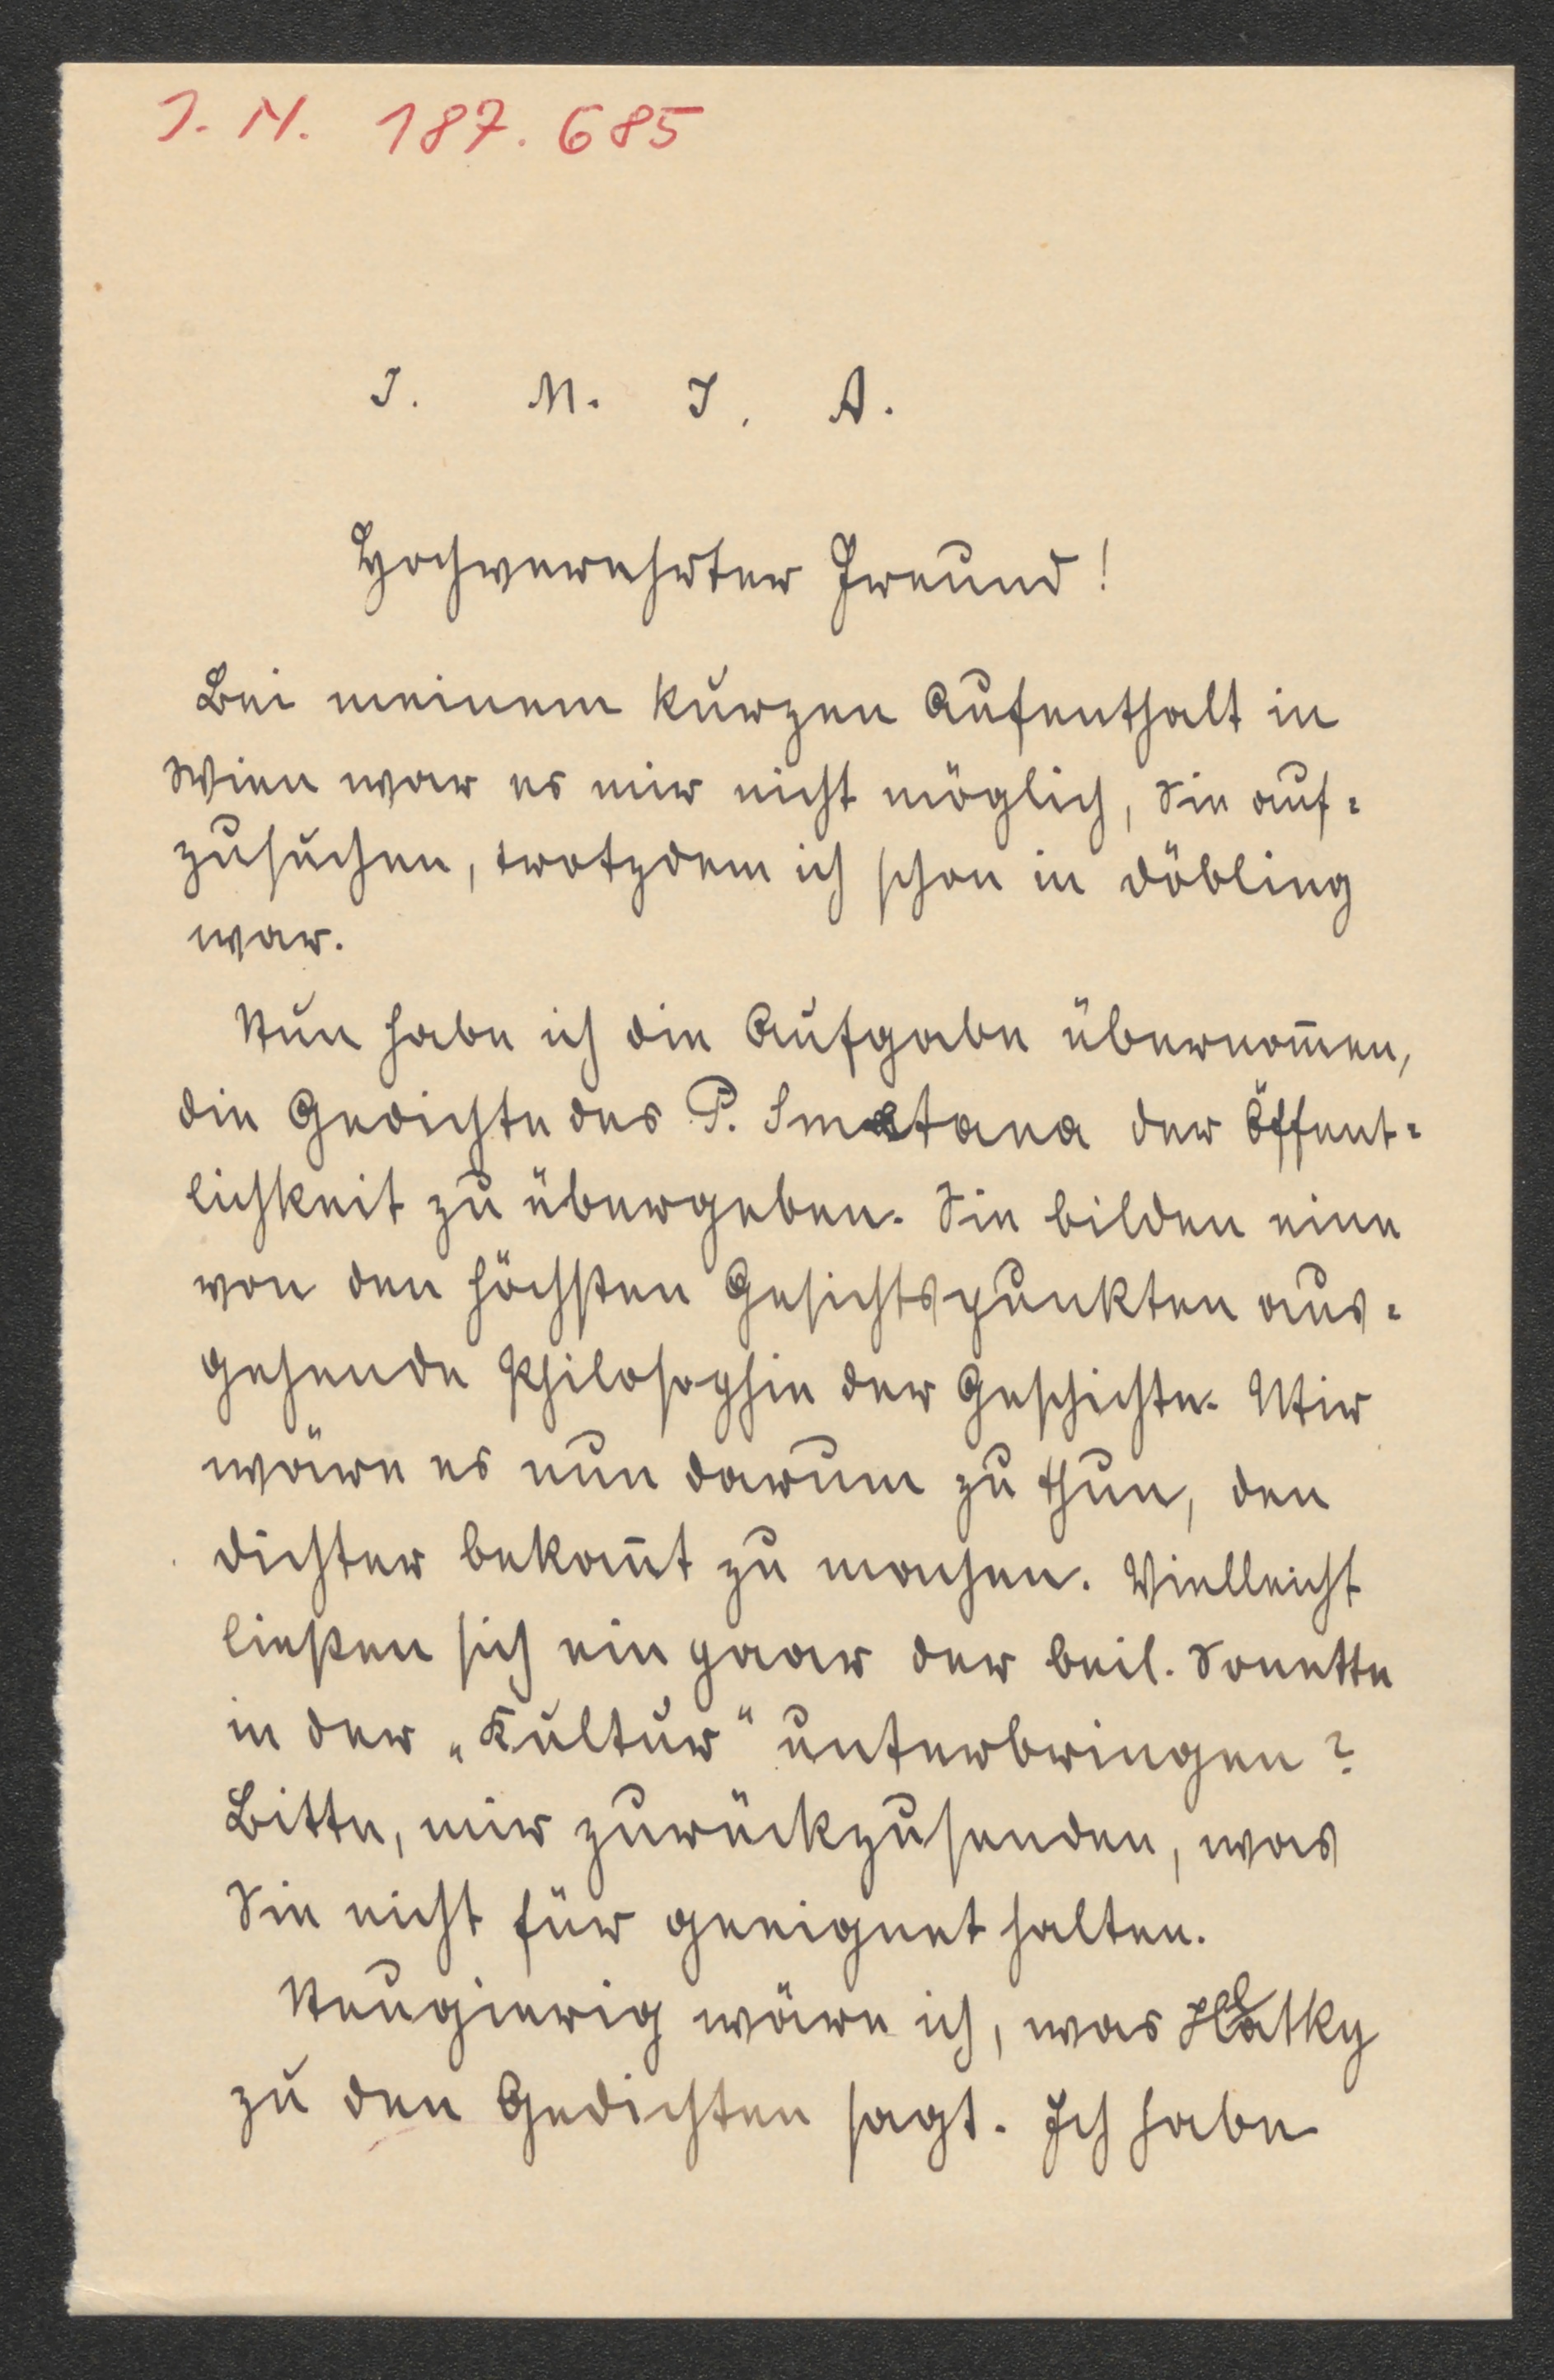 I. N. 187.685
J. M. J. A.
Hochverehrter Freund!
Bei meinem kurzen Aufenthalt in
Wien war es mir nicht möglich, Sie auf-
zusuchen, trotzdem ich schon in Döbling
war.
Nun habe ich die Aufgabe übernom̄en,
die Gedichte des P. Smetana der Öffent-
lichkeit zu übergeben. Sie bilden eine
von den höchsten Gesichtspunkten aus-
gehende Philosophie der Geschichte. Mir
wäre es nun darum zu thun, den
Dichter bekan̄t zu machen. Vielleicht
ließen sich ein paar der beil. Sonette
in der „Kultur" unterbringen?
Bitte, mir zurückzusenden, was
Sie nicht für geeignet halten.
Neugierig wäre ich, was Hlatky
zu den Gedichten sagt. Ich habe